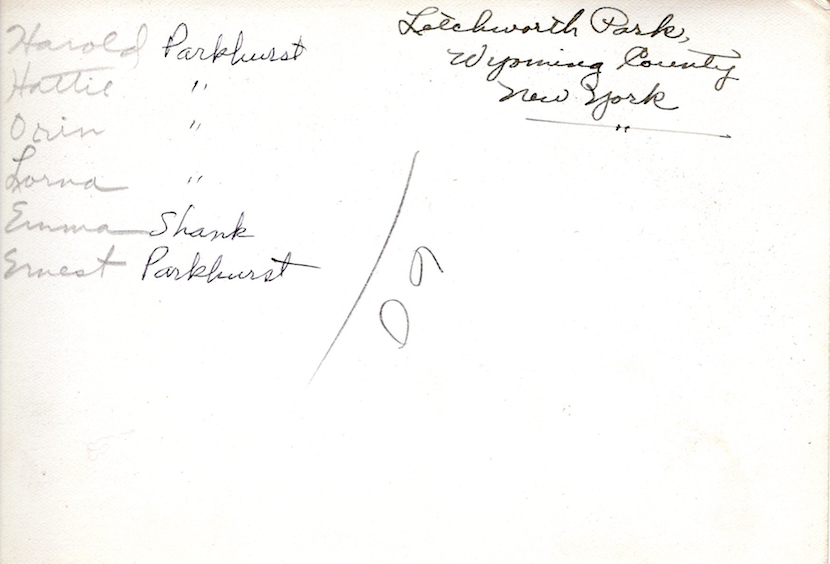 Harold Parkhurst
Hattie "
Orin "
Lorna "
Emma Shank
Ernest Parkhurst
Letchworth Park,
Wyoming County
New York
"